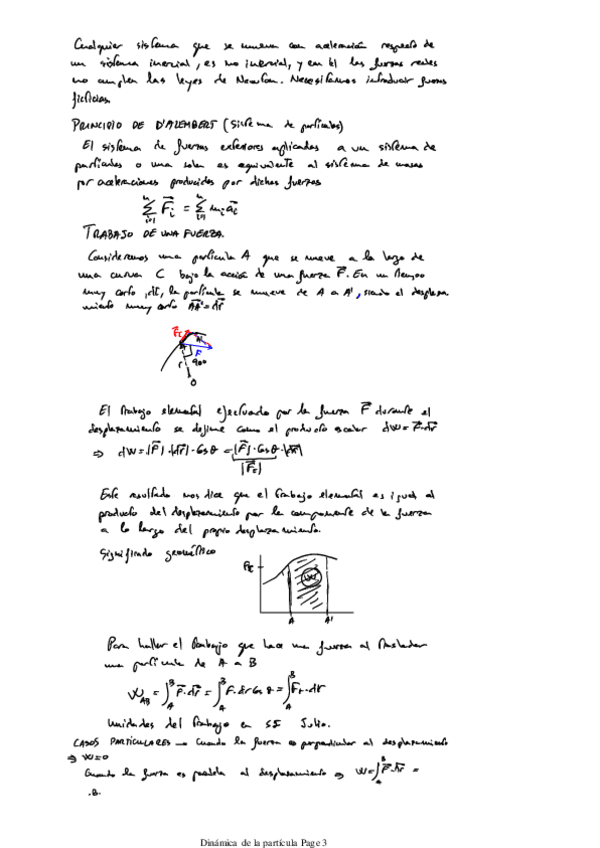 Cualquier sistema que se mueva con aceleración respecto de
un sistema inercial, es no inercial, y en él las fuerzas reales
no cumplen las leyes de Newton. Necesitamos introducir fuerzas
ficticias.
PRINCIPIO DE D'ALEMBERT (Sistema de partículas)
El sistema de fuerzas exteriores aplicadas a un sistema de
partículas o una sola es equivalente al sistema de masas
por aceleraciones producidas por dichas fuerzas
∑ᵢ₌₁ⁿ F⃗ᵢ = ∑ᵢ₌₁ⁿ mᵢ a⃗ᵢ
TRABAJO DE UNA FUERZA.
Consideremos una partícula A que se mueve a lo largo de
una curva C bajo la acción de una fuerza F⃗. En un tiempo
muy corto, dt, la partícula se mueve de A a A', siendo el desplaza
miento muy corto AA' = dr⃗
Ft A A'
F
r 90º
O
El trabajo elemental ejectuado por la fuerza F⃗ durante el
desplazamiento se define como el producto escalar dW = F⃗·dr⃗
⇒ dW = |F⃗|·|dr⃗|·cos θ = |F⃗|·cos θ·|dr⃗|
|F⃗t|
Este resultado nos dice que el trabajo elemental es igual al
producto del desplazamiento por la componente de la fuerza
a lo largo del propio desplazamiento.
Significado geométrico
Ft
W
A A'
Para hallar el trabajo que hace una fuerza al trasladar
una partícula de A a B
W_AB = ∫_A^B F⃗·dr⃗ = ∫_A^B F·dr cos θ = ∫_A^B Ft·dr
Unidades del trabajo en SI Julio.
CASOS PARTICULARES → Cuando la fuerza es perpendicular al desplazamiento
⇒ W=0
Cuando la fuerza es paralela al desplazamiento ⇒ W = ∫_A^B F⃗·dr⃗ =
.B.
Dinámica de la partícula Page 3